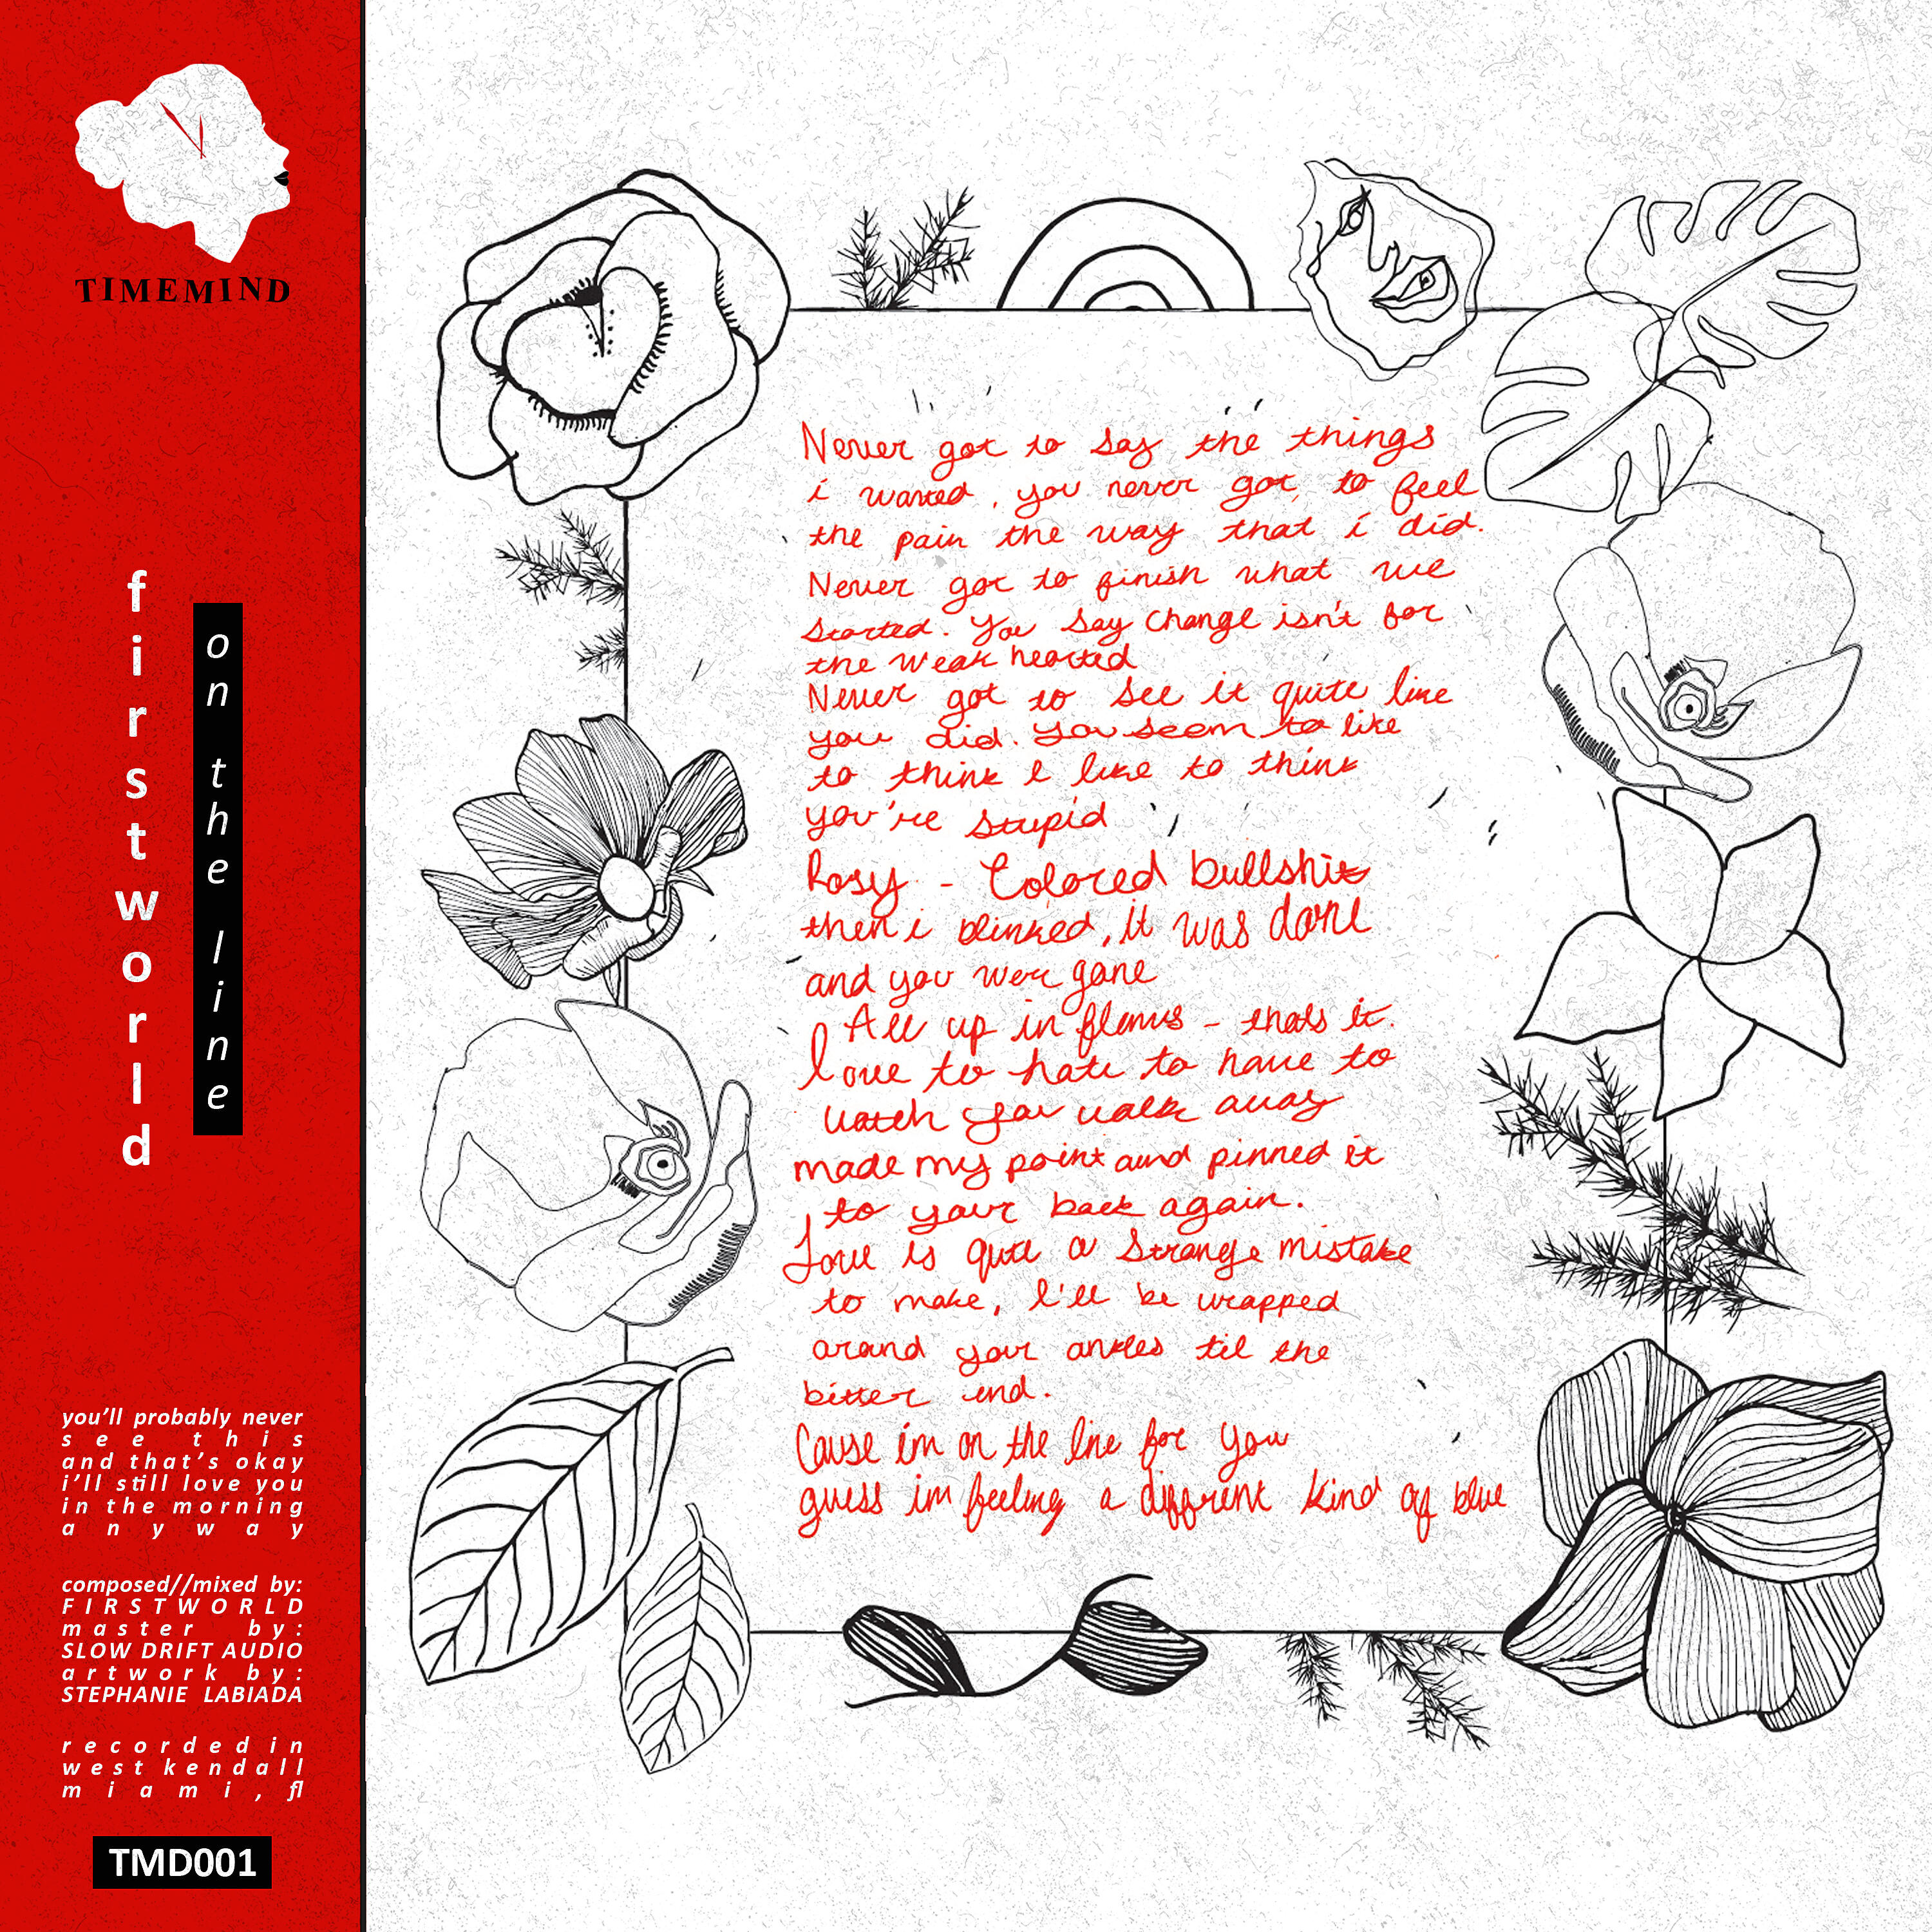 TIMEMIND
firstworld
on the line
you'll probably never
see this
and that's okay
i'll still love you
in the morning
anyway
composed//mixed by:
FIRSTWORLD
master by:
SLOW DRIFT AUDIO
artwork by:
STEPHANIE LABIADA
recorded in
west kendall
miami, fl
TMD001
Never got to say the things
i wanted, you never got to feel
the pain the way that i did.
Never got to finish what we
started. You say change isn't for
the weak hearted
Never got to see it quite like
you did. You seem to like
to think I like to think
you're stupid
Rosy - Colored bullshit
then i blinked, it was done
and you were gone
All up in flames - thats it.
Love to hate to have to
watch you walk away
made my point and pinned it
to your back again.
Love is quite a strange mistake
to make, I'll be wrapped
around your ankles til the
bitter end.
Cause im on the line for you
guess im feeling a different kind of blue